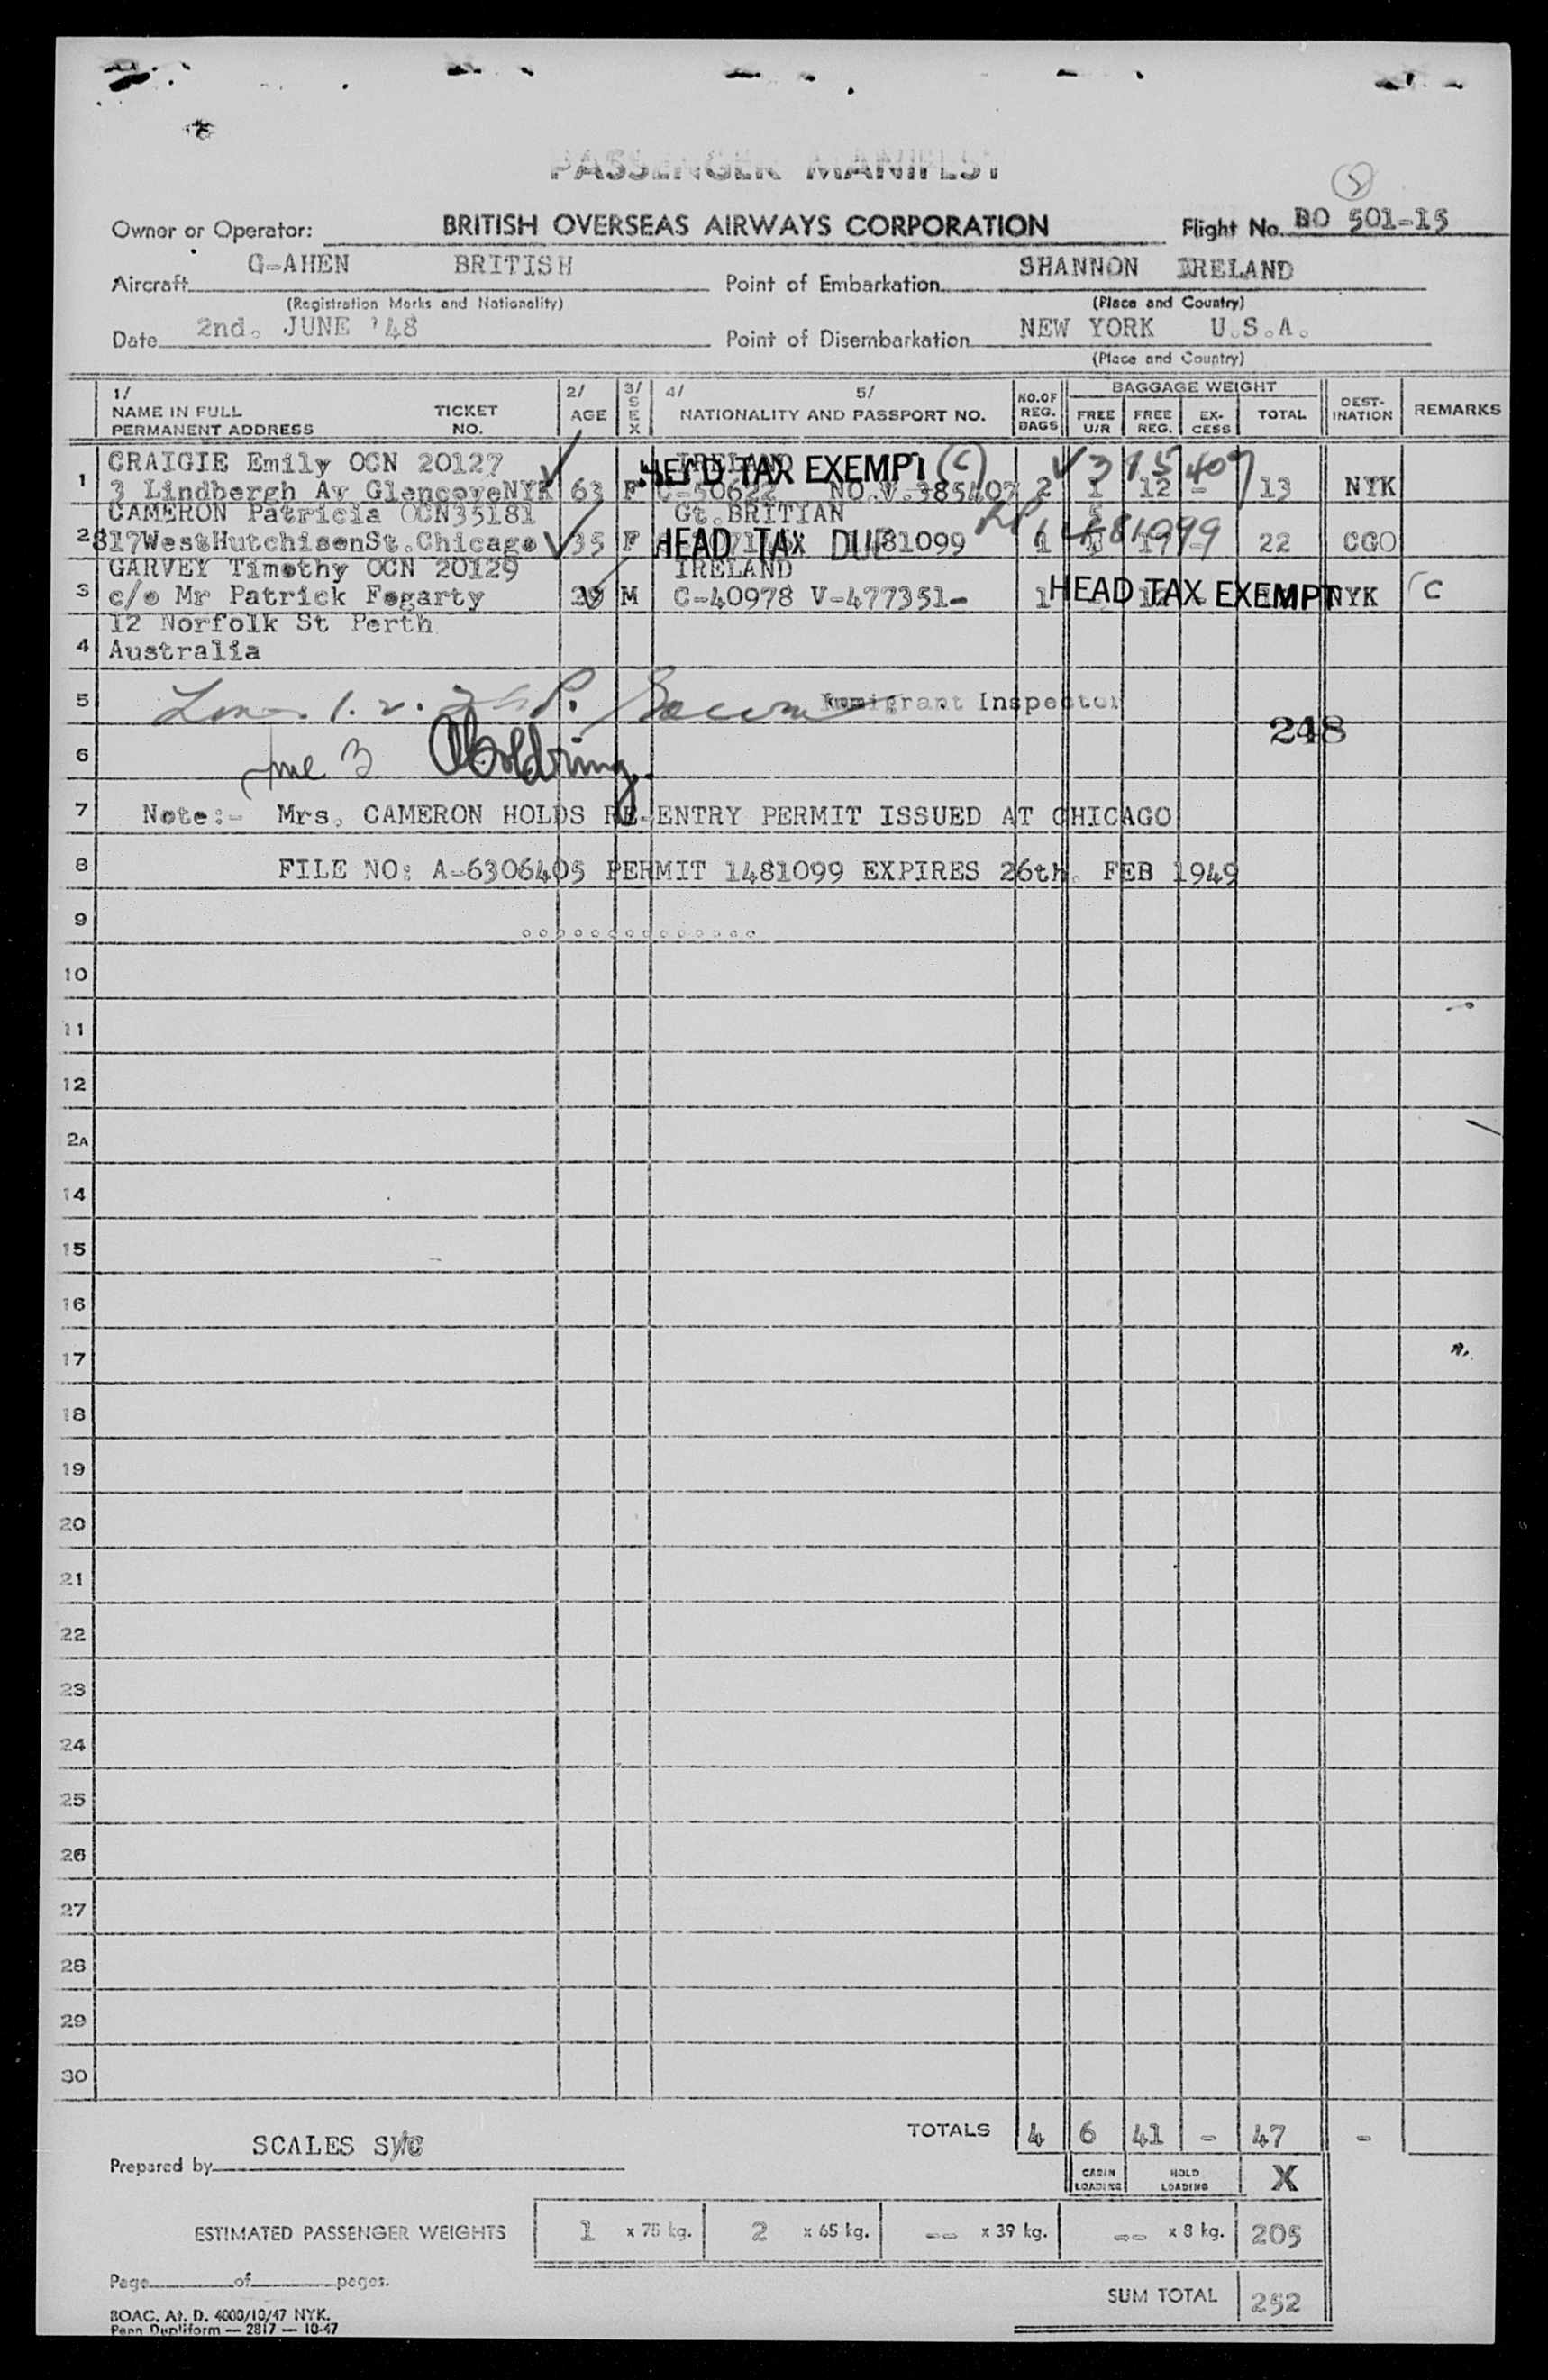 PASSENGER MANIFEST
5
Owner or Operator: BRITISH OVERSEAS AIRWAYS CORPORATION Flight No. BO 501-15
Aircraft G-AHEN BRITISH Point of Embarkation SHANNON IRELAND
(Registration Marks and Nationality) (Place and Country)
Date 2nd. JUNE '48 Point of Disembarkation NEW YORK U.S.A.
(Place and Country)
1/ NAME IN FULL PERMANENT ADDRESS TICKET NO. 2/ AGE 3/ SEX 4/ 5/ NATIONALITY AND PASSPORT NO. NO. OF REG. BAGS BAGGAGE WEIGHT FREE U/R FREE REG. EX-CESS TOTAL DEST-INATION REMARKS
CRAIGIE Emily OCN 20127 IRELAND HEAD TAX EXEMPT (C)
1 3 Lindbergh Av GlencoveNYK 63 F C-50622 NO.V.385407 2 1 12 - 13 NYK
CAMERON Patricia OCN35181 Gt.BRITIAN
2 817WestHutchisonSt.Chicago 35 F HEAD TAX DUE 81099 1 5 17 - 22 CGO
1481099
GARVEY Timothy OCN 20129 IRELAND
3 c/o Mr Patrick Fogarty M C-40978 V-477351- 1 HEAD TAX EXEMPT NYK C
12 Norfolk St Perth
4 Australia
5 Immigrant Inspector
248
6
7 Note:- Mrs. CAMERON HOLDS RE-ENTRY PERMIT ISSUED AT CHICAGO
8 FILE NO: A-6306405 PERMIT 1481099 EXPIRES 26th. FEB 1949
9
10
11
12
12A
14
15
16
17
18
19
20
21
22
23
24
25
26
27
28
29
30
TOTALS 4 6 41 - 47 -
Prepared by SCALES SWC
CABIN LOADING HOLD LOADING X
ESTIMATED PASSENGER WEIGHTS 1 x 75 kg. 2 x 65 kg. -- x 39 kg. -- x 8 kg. 205
Page of pages.
SUM TOTAL 252
BOAC. At. D. 4000/10/47 NYK.
Penn Dupliform — 2817 — 10-47